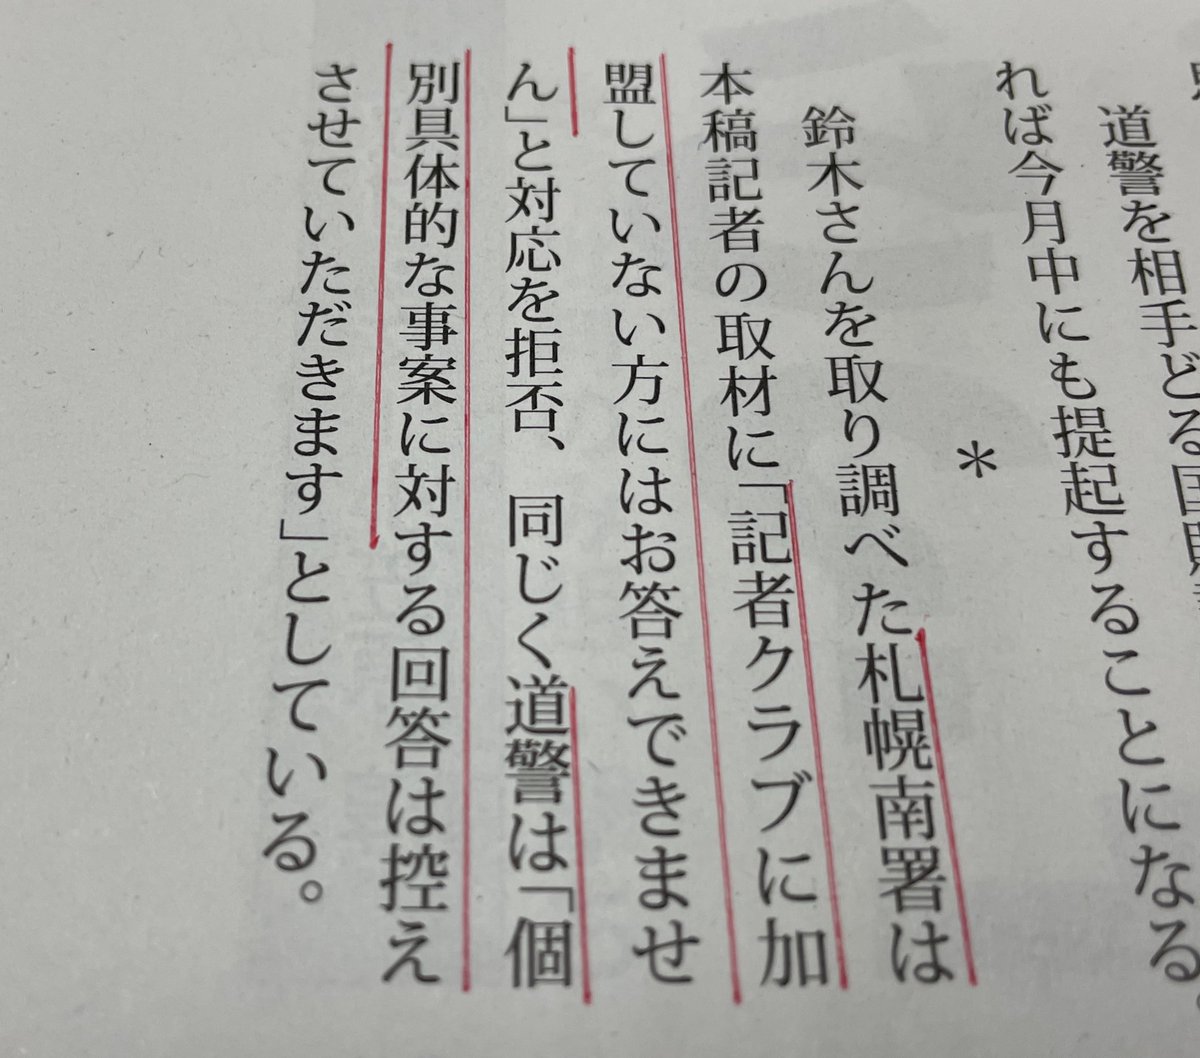 道警を相手どる国賠
れば今月中にも提起することになる。
＊
鈴木さんを取り調べた札幌南署は
本稿記者の取材に「記者クラブに加
盟していない方にはお答えできませ
ん」と対応を拒否、同じく道警は「個
別具体的な事案に対する回答は控え
させていただきます」としている。